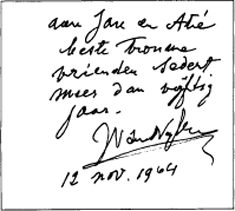 aan Jan en Atie
beste trouwe
vrienden sedert
meer dan vijftig
jaar.
12 nov. 1964